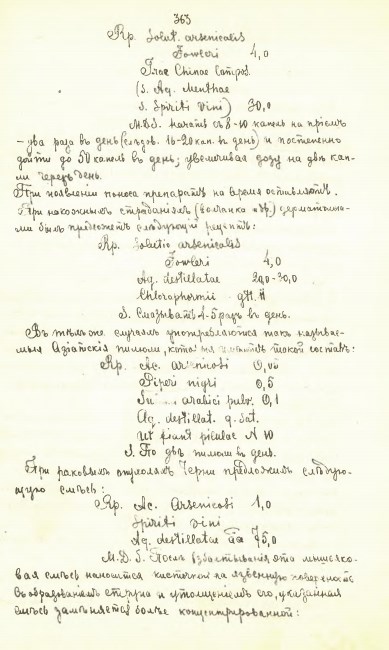 363
Rp. Solut. arsenicalis
Fowleri 4,0
T-rae Chinae Compos.
(s. Aq. Menthae
s. Spiriti vini) 30,0
M.D.S. начать съ 8-10 капель на приемъ
- два раза въ день (слѣдов. 16-20 кап. въ день) и постепенно
дойти до 50 капель въ день; увеличивая дозу на двѣ кап-
ли черезъ день.
При появленіи поноса препаратъ на время оставляютъ.
При накожныхъ страданіяхъ (волчанка и др.) дерматолога-
ми былъ предложенъ слѣдующій рецептъ:
Rp. Solutio arsenicalis
Fowleri 4,0
Aq. destillatae 20,0-30,0
Chlorophormii gtt. II
S. Смазывать 4-5 разъ въ день.
Въ тѣхъ же случаяхъ употребляются такъ называе-
мыя Азіатскія пилюли, такой составъ:
Rp. Ac. arsenicosi
Piperi nigri 0,5
arabici pulv. 0,1
Aq. destillat. q. sat.
Ut fiant pilulae N 10
S. По двѣ пилюли въ день.
При раковыхъ опухоляхъ Черни предложилъ слѣдую-
щую смѣсь:
Rp. Ac. Arsenicosi 1,0
Spiriti vini
Aq. destillatae aa 75,0
M.D.S. Послѣ взбалтыванія эта мышьяко-
вая смѣсь наносится кисточкой на язвенную поверхность
съ образованіемъ струпа и утолщеніемъ его, указанная
смѣсь замѣняется болѣе концентрированной: